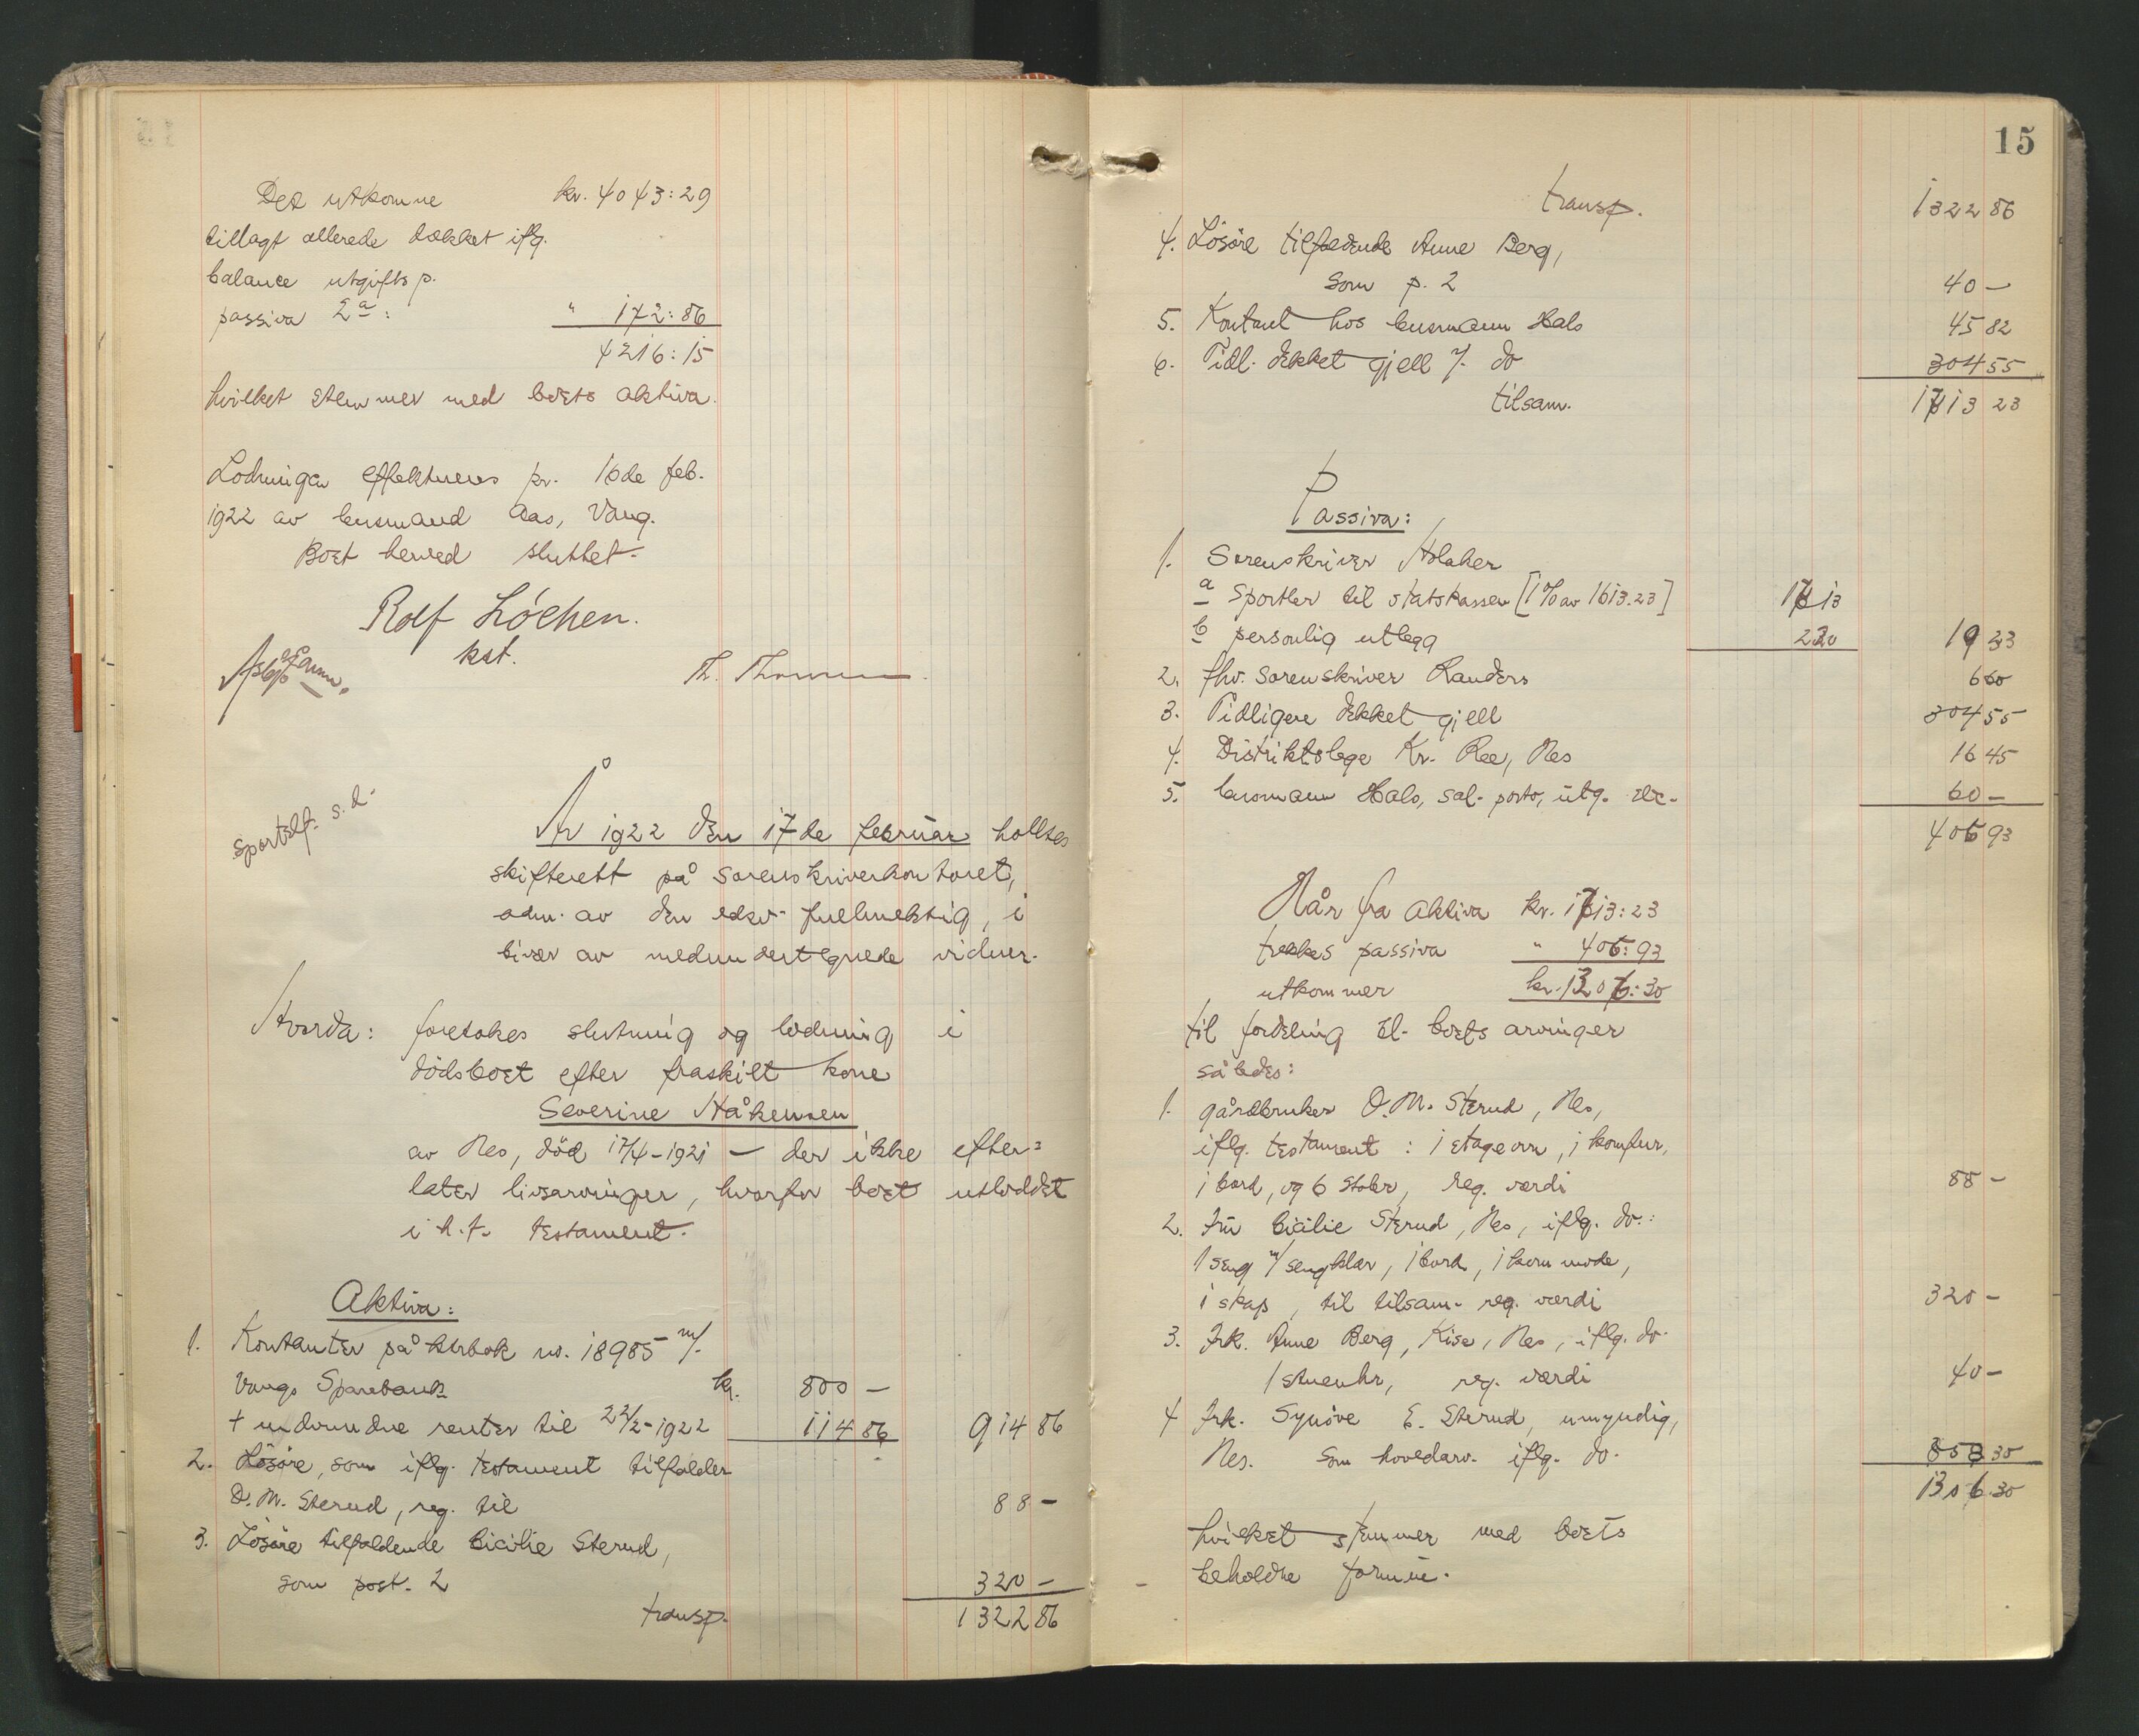 Det utkomne kr. 4043:29
tillagt allerede dækket iflg.
balance utgifts p.
passiva 2a: " 172:86
4216:15
hvilket stemmer med boets aktiva.
Lodningen effektueres pr. 16de feb.
1922 av lensmand Aas, Vang.
Boet herved sluttet.
Rolf Löchen.
kst.
Th.
Sportelf. s. d.
År 1922 den 17de februar holltes
skifterett på sorenskriverkontoret,
adm. av den edsv. fullmektig, i
biver av medundertegnede vidner.
Hvorda: foretokes slutning og lodning i
dödsboet efter fraskilt kone
Severine Håkensen
av Nes, död 17/4-1921 – der ikke efter=
later livsarvinger, hvorfor boet utloddet
i h.t. testament.
Aktiva:
1. Kontanter på bkbok no. 18985 m/.
Vangs Sparebank kr. 800 –
+ indvundne renter til 22/2-1922 114 86 914 86
2. Lösöre, som iflg. testament tilfalder
O. M. Sterud, reg. til 88 –
3. Lösöre tilfaldende Cicilie Sterud,
som post. 2 320 –
transp. 1322 86
15
transp. 1322 86
4. Lösöre tilfaldende Anne Berg,
som p. 2 40 –
5. Kontant hos lensmann Hals 45 82
6. Tidl. dekket gjell %. do 304 55
tilsam. 1713 23
Passiva:
1. Sorenskriver Aslaker
a Sportler til statskassen [1% av 1613.23] 17 13
b personlig utlegg 2 20 19 33
2. fhv. sorenskriver Randers 6 60
3. Tidligere dekket gjell 304 55
4. Distriktslege Kr. Ree, Nes 16 45
5. lensmann Hals, sal. porto, utg. etc. 60 –
406 93
Når fra aktiva kr. 1713:23
trekkes passiva " 406:93
utkommer kr. 1306:30
til fordeling bl. boets arvinger
således:
1. gårdbruker O. M. Sterud, Nes,
iflg. testament: 1 etageovn, 1 komfur,
1 bord, og 6 stoler, reg. værdi 88 –
2. Fru Cicilie Sterud, Nes, iflg. do.:
1 seng m/ sengklær, 1 bord, 1 kommode,
1 skap, til tilsam. reg. værdi 320 –
3. Frk. Anne Berg, Kise, Nes, iflg. do.
1 stueuhr, reg. værdi 40 –
4 Frk. Synöve E. Sterud, umyndig,
Nes. Som hovedarv. iflg. do. 858 30
1306.30
hvilket stemmer med boets
beholdne formue.